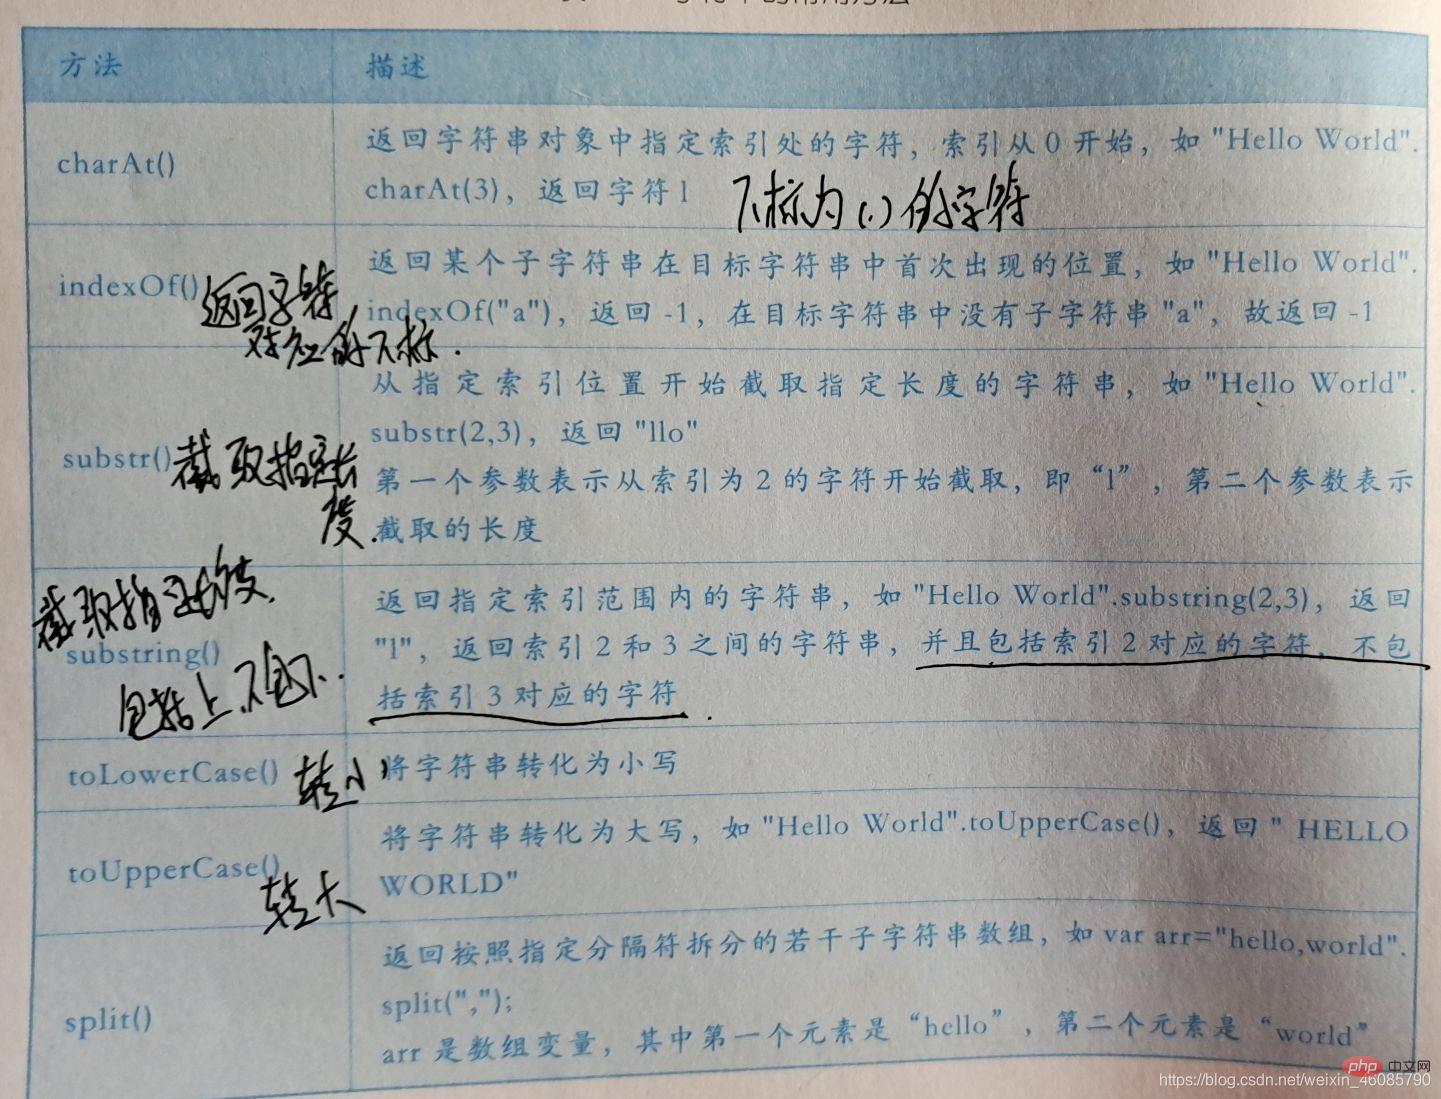 方法 描述
返回字符串对象中指定索引处的字符，索引从0开始，如"Hello World".
charAt()
charAt(3)，返回字符l
下标为(.)的字符
返回某个子字符串在目标字符串中首次出现的位置，如"Hello World".
indexOf()
返回字符
对应的下标.
indexOf("a")，返回-1，在目标字符串中没有子字符串"a"，故返回-1
从指定索引位置开始截取指定长度的字符串，如"Hello World".
substr()
截取指定长
度.
substr(2,3)，返回"llo"
第一个参数表示从索引为2的字符开始截取，即“l”，第二个参数表示
截取的长度
截取指定长度.
substring()
包括上.不包下.
返回指定索引范围内的字符串，如"Hello World".substring(2,3)，返回
"l"，返回索引2和3之间的字符串，并且包括索引2对应的字符，不包
括索引3对应的字符
toLowerCase()
转小
将字符串转化为小写
toUpperCase()
转大
将字符串转化为大写，如"Hello World".toUpperCase()，返回" HELLO
WORLD"
返回按照指定分隔符拆分的若干子字符串数组，如var arr="hello,world".
split()
split(",");
arr是数组变量，其中第一个元素是“hello”，第二个元素是“world”
php 中文网
https://blog.csdn.net/weixin_46085790